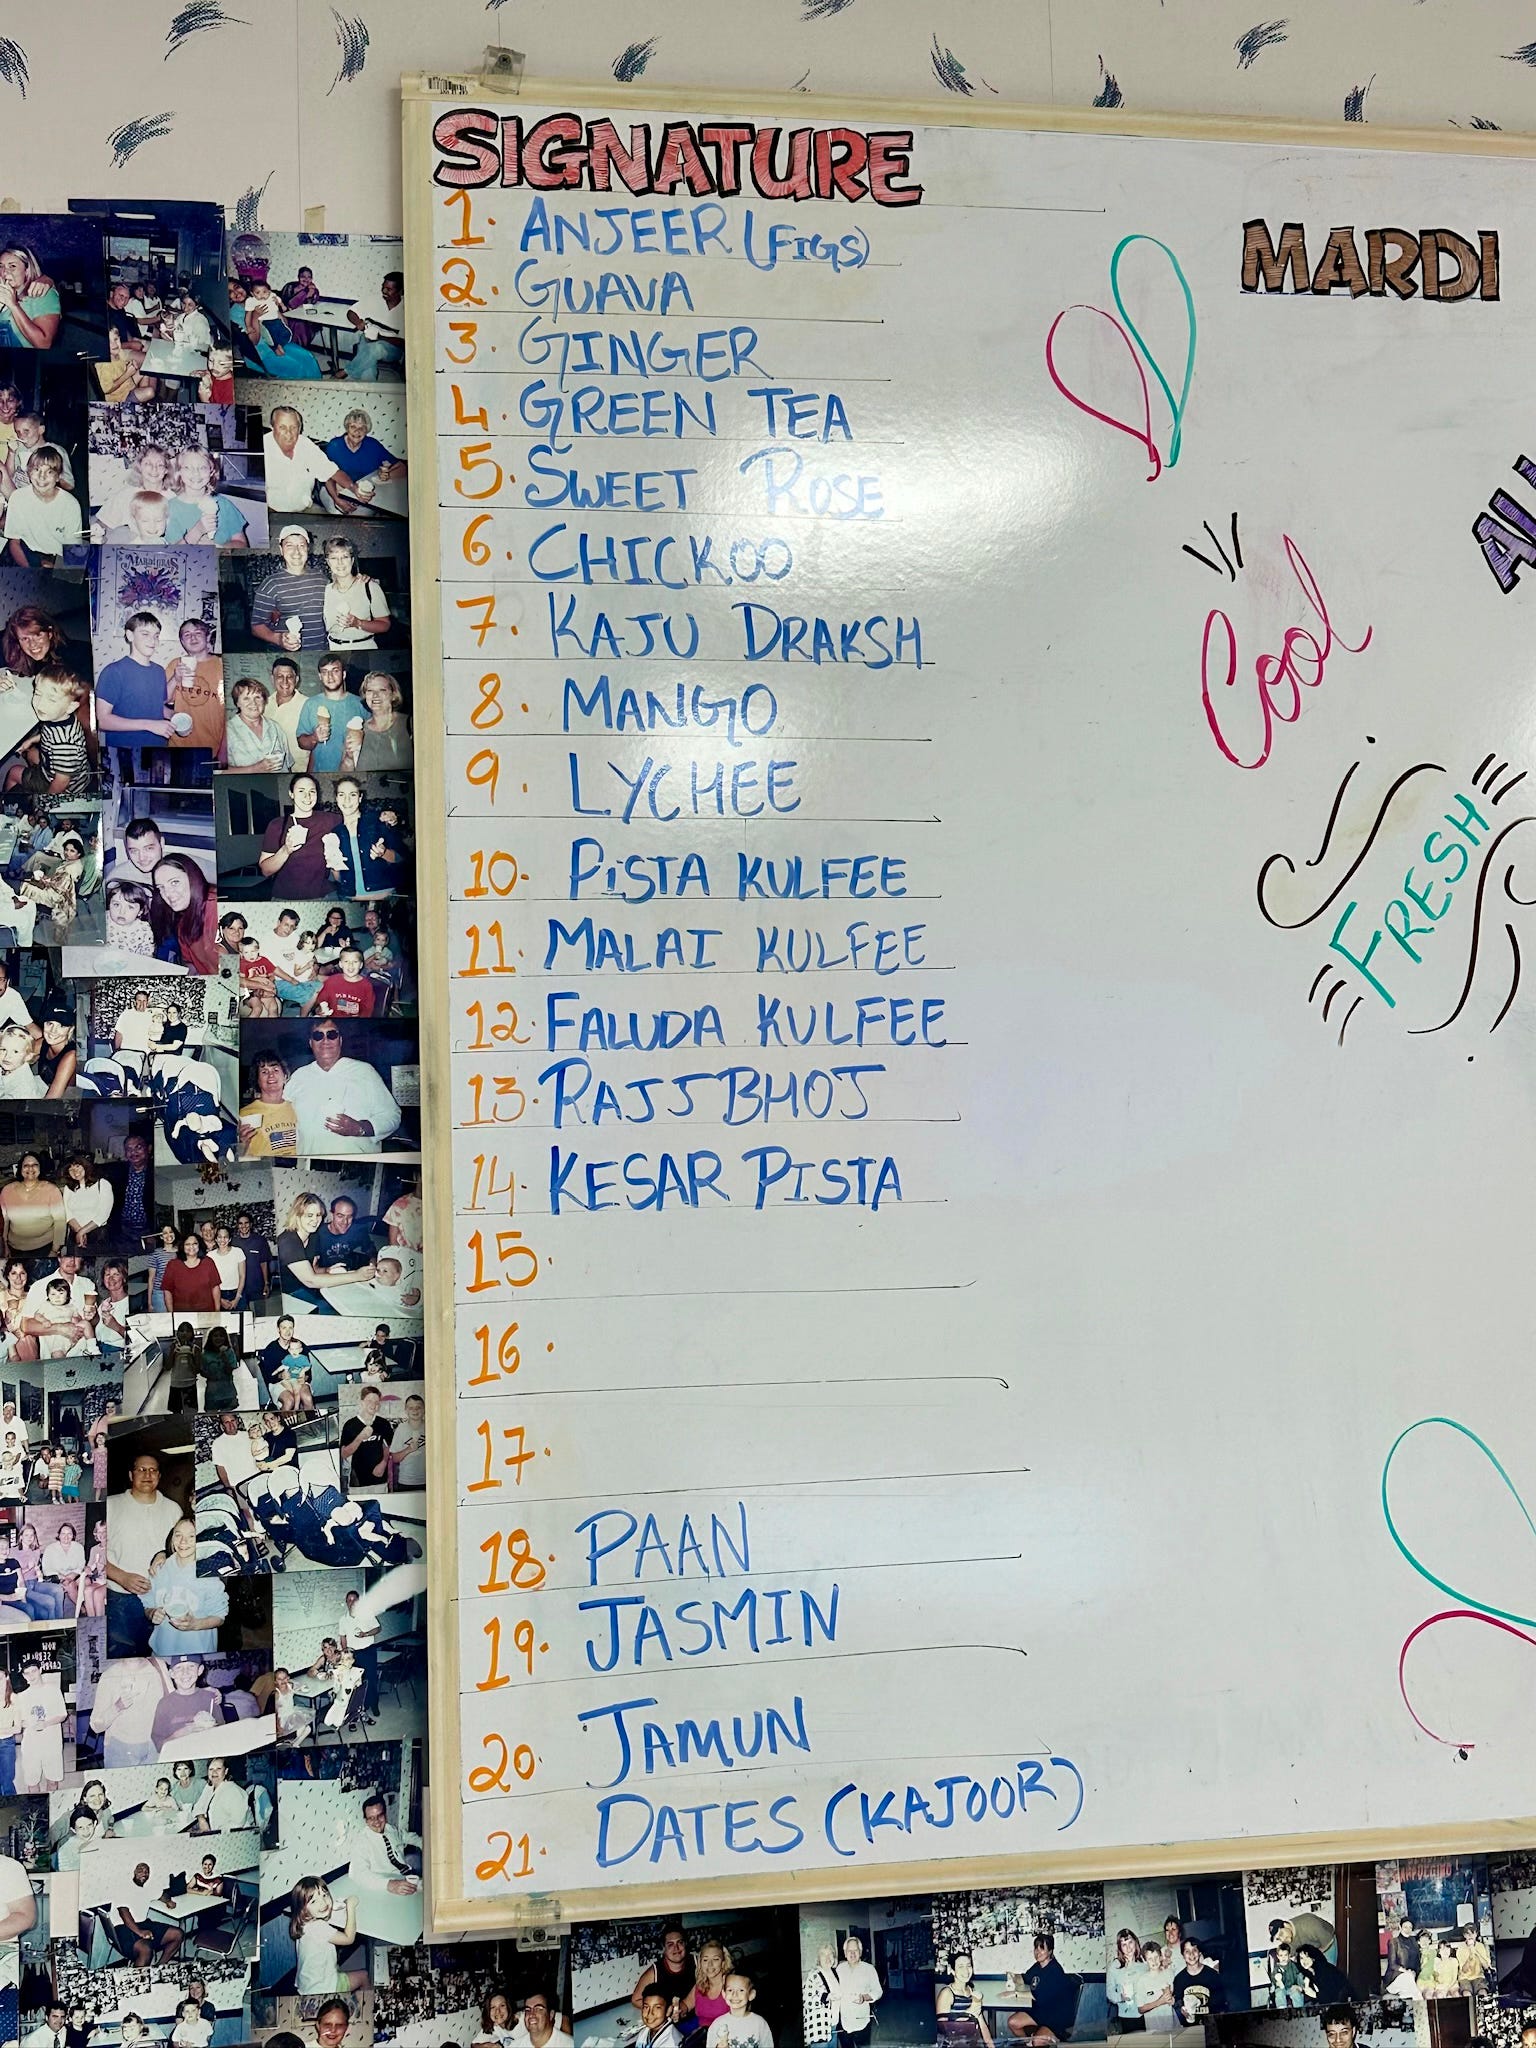 SIGNATURE
1. ANJEER (FIGS)
2. GUAVA
3. GINGER
4. GREEN TEA
5. SWEET ROSE
6. CHICKOO
7. KAJU DRAKSH
8. MANGO
9. LYCHEE
10. PISTA KULFEE
11. MALAI KULFEE
12. FALUDA KULFEE
13. RAJJBHOJ
14. KESAR PISTA
15.
16.
17.
18. PAAN
19. JASMIN
20. JAMUN
21. DATES (KAJOOR)
MARDI
Cool
FRESH
MARDI GRAS